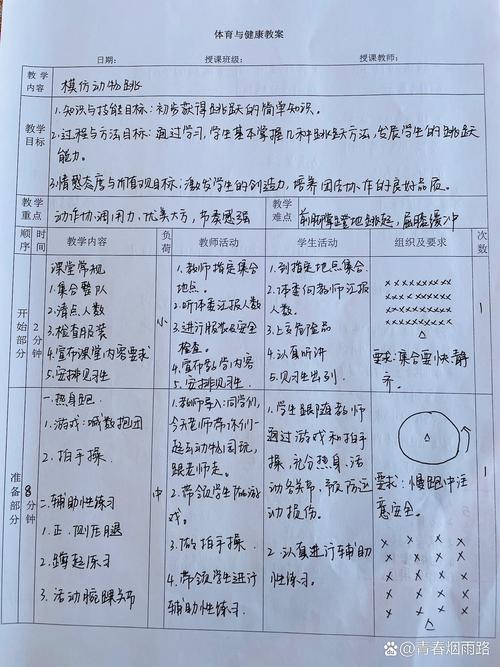 体育与健康教案
日期: 授课班级: 授课教师:
教学内容 模仿动物跳
教学目标
1.知识与技能目标:初步获得跳跃的简单知识。
2.过程与方法目标:通过学习,学生基本掌握几种跳跃方法,发展学生的跳跃
能力。
3.情感态度与价值观目标:激发学生的创造力,培养团结协作的良好品质。
教学重点 动作协调用力、优美大方,节奏感强
教学难点 前脚掌蹬地跳起,屈膝缓冲
顺序 时间 教学内容 负荷 教师活动 学生活动 组织及要求 次数
开始部分
2分钟
课堂常规
1.集合整队
2.清点人数
3.检查服装
4.宣布课堂内容要求
5.安排见习生
小
1.教师指定集合
地点。
2.听体委汇报人数
3.进行服装及安全
检查。
4.宣布教学内容
5.安排见习生
1.到指定地点集合.
2.体委向教师汇报
人数。
3.上交危险品
4.认真听讲
5.见习生出列.
×××××××××
×××××××××
×××××××××
×××××××××
△
要求:集合要快静
齐。
1
准备部分
8分钟
一.热身跑
1.游戏:喊数抱团
2.拍手操
二.辅助性练习
1.正、侧压腿
2.蹲起练习
3.活动腕踝关节
中
1.教师导入:同学们,
今天老师带你们一
起去动物园玩,
跟老师走。
2.带领学生做游
戏。
3.做拍手操.
4.带领学生进行
辅助性练习.
1.学生跟随教师
通过游戏和拍手
操,充分热身、活
动各关节、预防运
动损伤。
2.认真进行辅助
性练习。
△
要求:慢跑中注
意安全。
× × × × ×
× × × × ×
× × × × ×
× × × × ×
△
1
@青春烟雨路